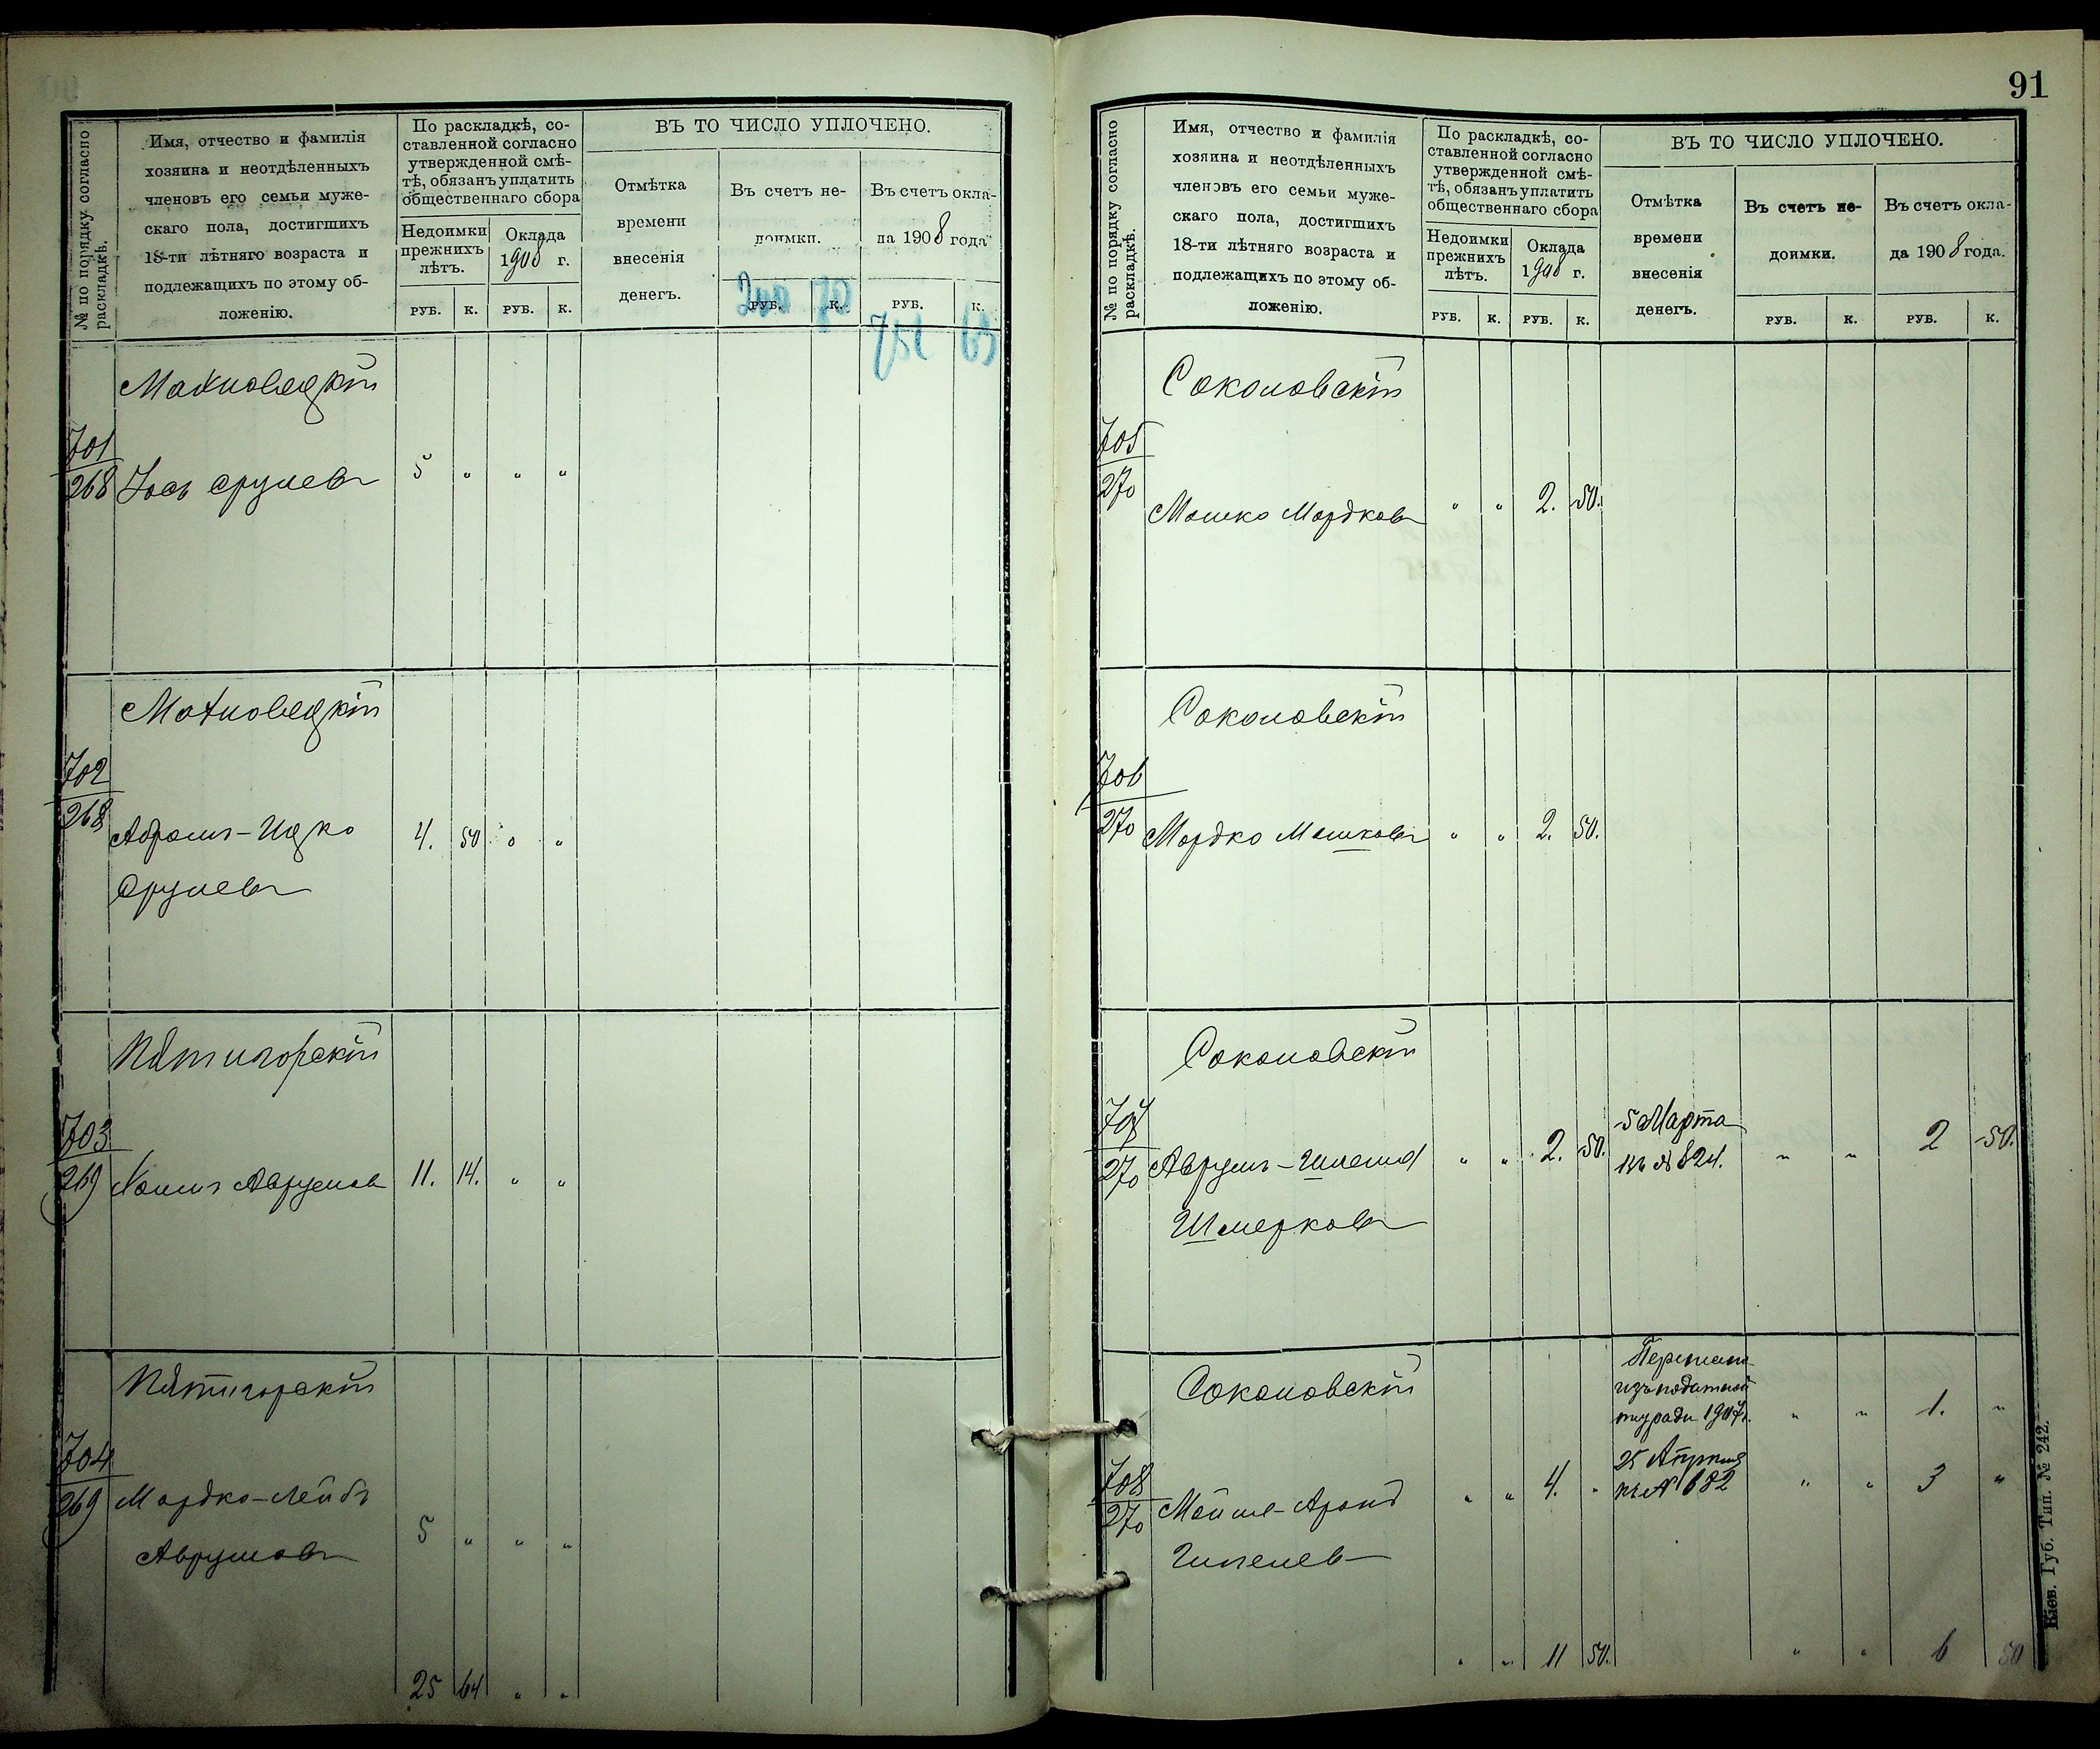 91
№ по порядку согласно раскладкѣ.
Имя, отчество и фамилія
хозяина и неотдѣленныхъ
членовъ его семьи муже-
скаго пола, достигшихъ
18-ти лѣтняго возраста и
подлежащихъ по этому об-
ложенію.
По раскладкѣ, со-
ставленной согласно
утвержденной смѣ-
тѣ, обязанъ уплатить
общественнаго сбора
Недоимки
прежнихъ
лѣтъ.
Оклада
1908 г.
РУБ. К. РУБ. К.
ВЪ ТО ЧИСЛО УПЛОЧЕНО.
Отмѣтка
времени
внесенія
денегъ.
Въ счетъ не-
доимки.
Въ счетъ окла-
да 1908 года
РУБ. К. РУБ. К.
Махновецкій
701
268 Іось Срулевъ 5 „ „ „
Махновецкій
702
268 Абрамъ-Ицко 4. 50 „ „
Срулевъ
Пятигорскій
703
269 Аврумовъ 11. 14. „ „
Пятигорскій
704
269 Мордко-Лейбъ
Аврумовъ 5 „ „ „
25 64 „ „
№ по порядку согласно раскладкѣ.
Имя, отчество и фамилія
хозяина и неотдѣленныхъ
членовъ его семьи муже-
скаго пола, достигшихъ
18-ти лѣтняго возраста и
подлежащихъ по этому об-
ложенію.
По раскладкѣ, со-
ставленной согласно
утвержденной смѣ-
тѣ, обязанъ уплатить
общественнаго сбора
Недоимки
прежнихъ
лѣтъ.
Оклада
1908 г.
РУБ. К. РУБ. К.
ВЪ ТО ЧИСЛО УПЛОЧЕНО.
Отмѣтка
времени
внесенія
денегъ.
Въ счетъ не-
доимки.
Въ счетъ окла-
да 1908 года.
РУБ. К. РУБ. К.
Соколовскій
705
270 Мошко Мордковъ „ „ 2. 50.
Соколовскій
706
270 Мордко Мошковъ „ „ 2. 50.
Соколовскій
707 5 Марта
270 Аврумъ-Шлема „ „ 2. 50. кв № 524. „ „ 2 50.
Шмерковъ
Соколовскій
1907г. „ „ 1. „
708 25 Апрѣля
270 Мойше-Аронъ „ „ 4. „ кв № 682 „ „ 3 „
„ „ 11 50. „ „ 6 50
Кіев. Губ. Тип. № 242.